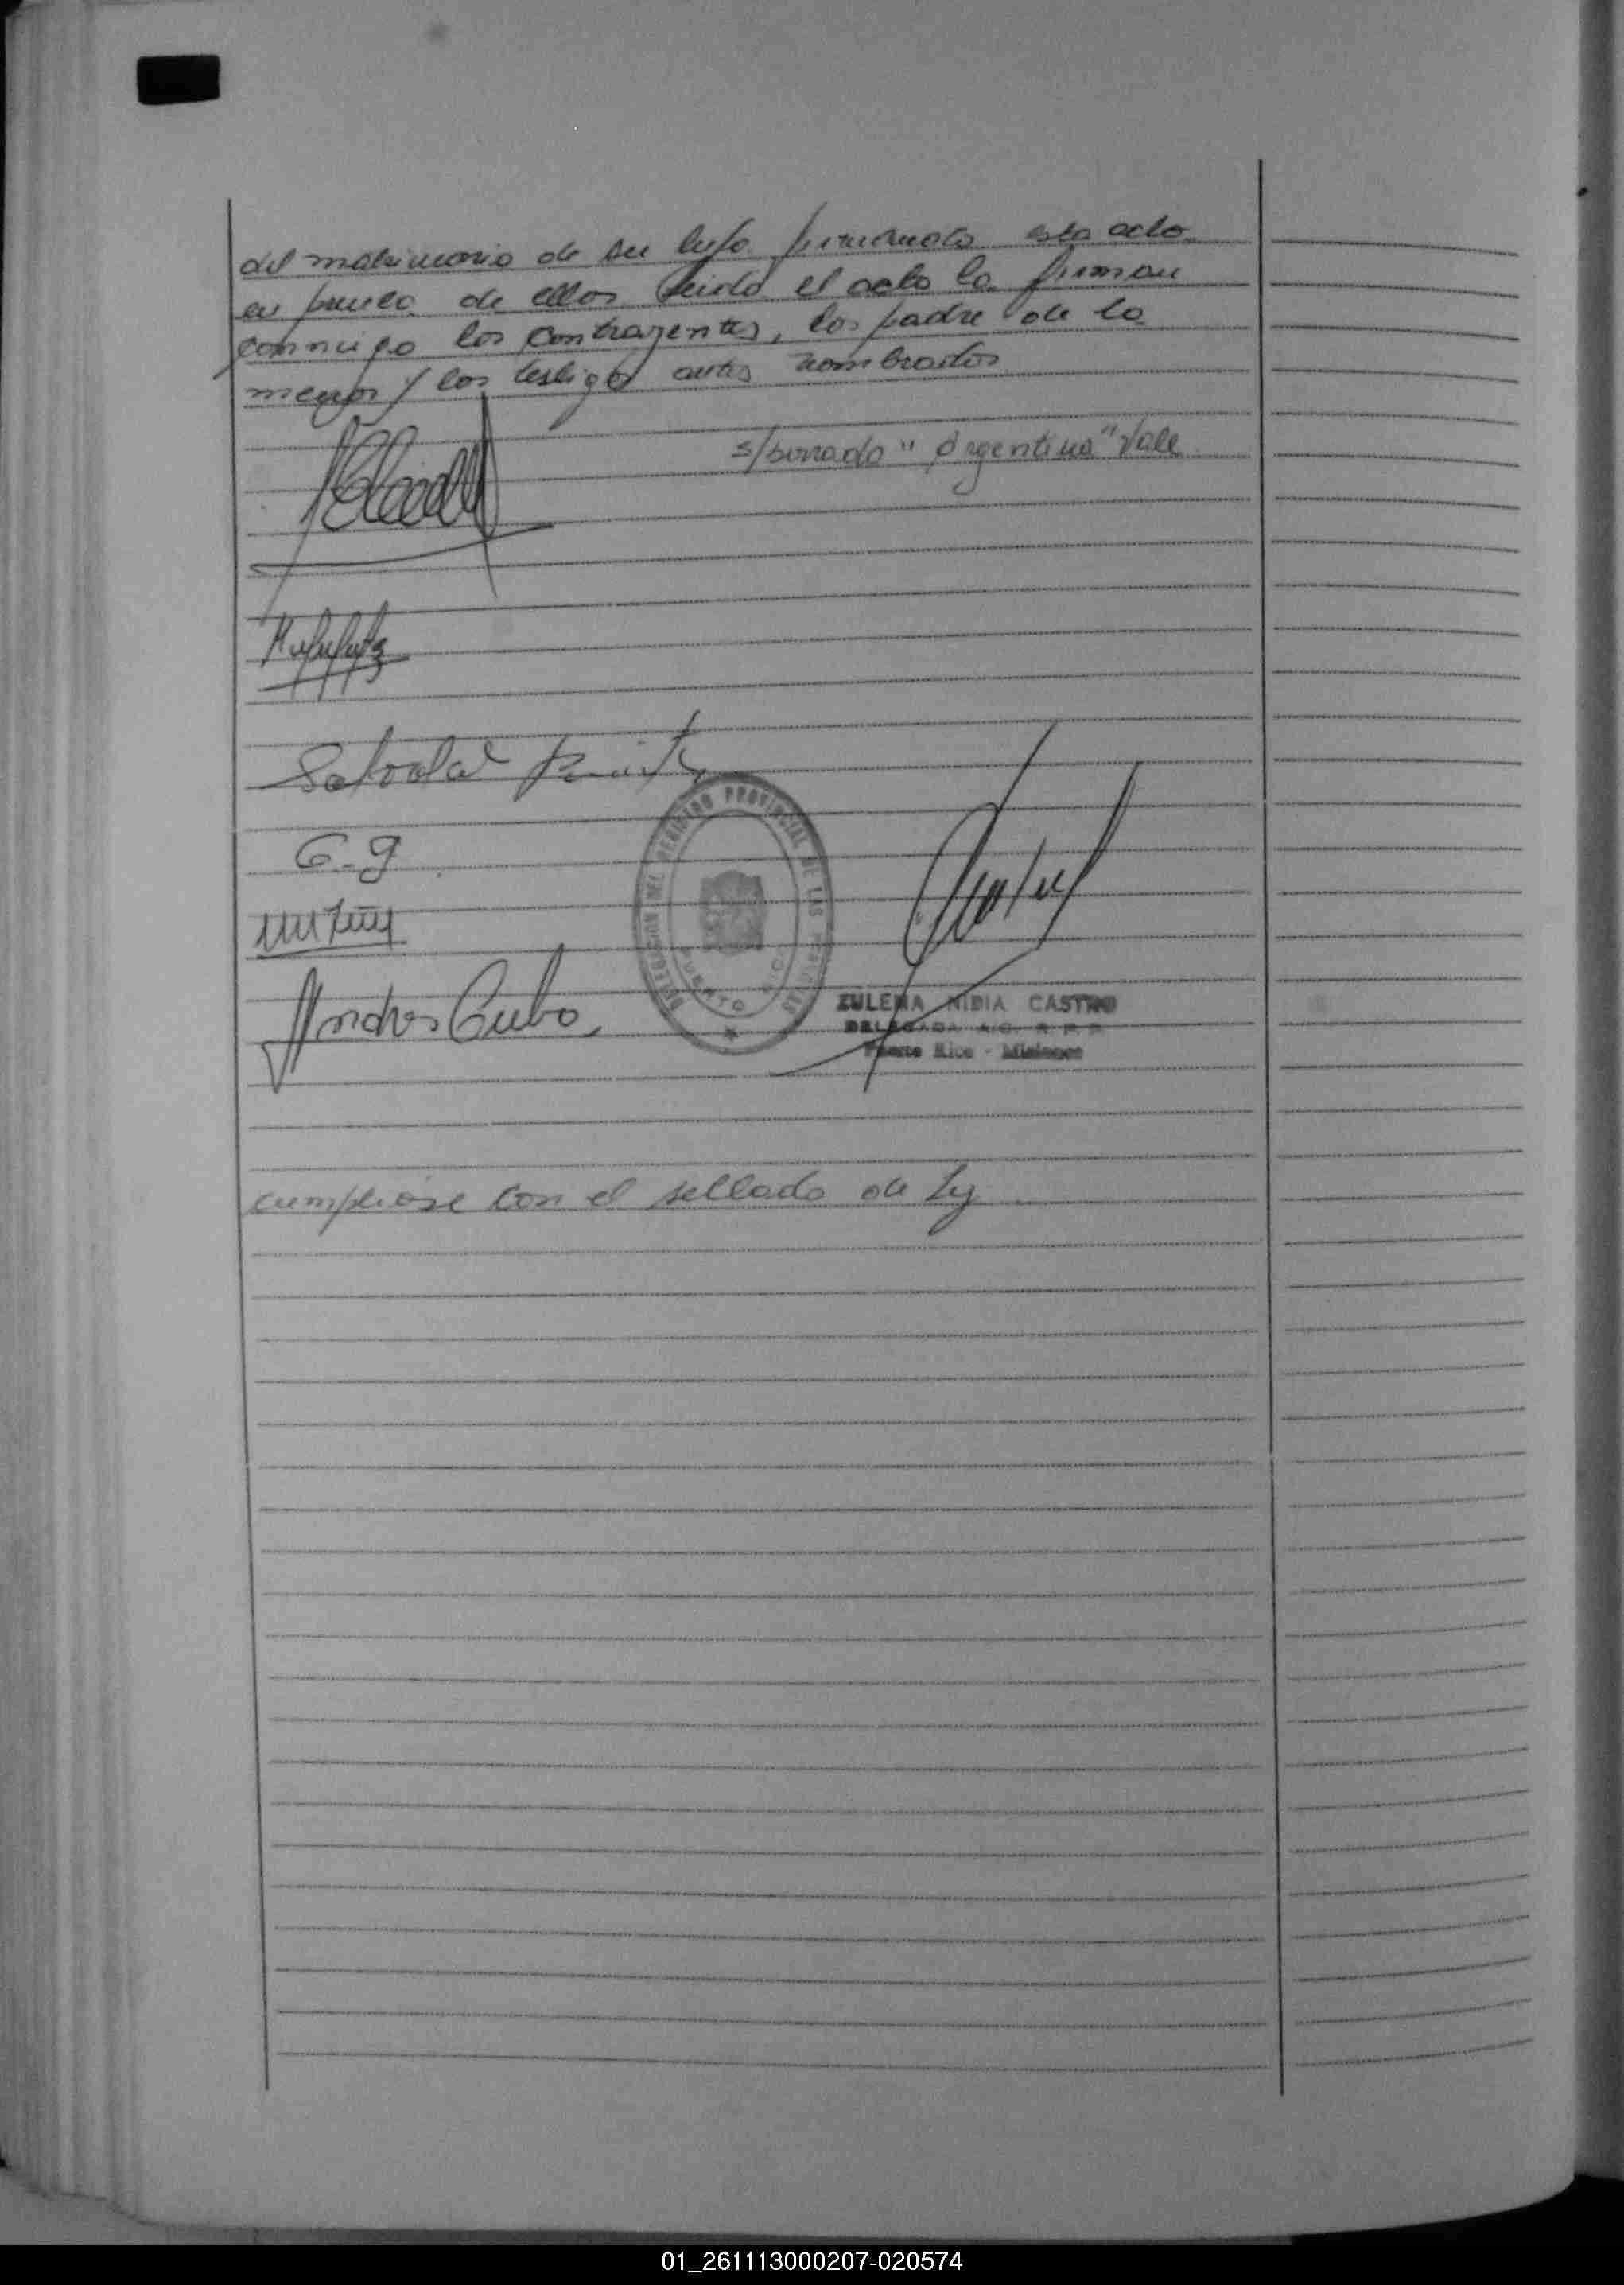 del matrimonio de su hija firmando esta acta
en prueba de ellos leida el acta la firman
conmigo los contrayentes, los padre de la
menor y los testigos antes nombrados
s/borrado "Argentina" Vale
Salvador
G. g
Andres Cubo
DELEGACION DEL REGISTRO PROVINCIAL DE LAS PERSONAS
PUERTO RICO
ZULEMA NIDIA CASTRO
DELEGADA A/C. R. P. P.
Puerto Rico - Misiones
cumpliose con el sellado de Ley
01_261113000207-020574